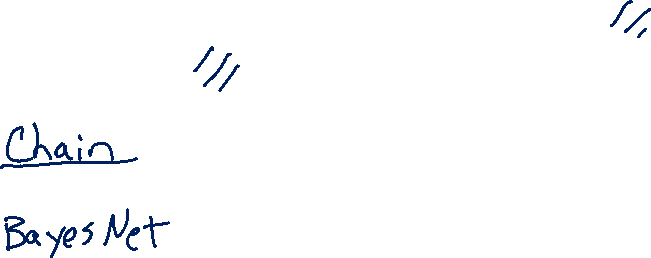 Chain
Bayes Net